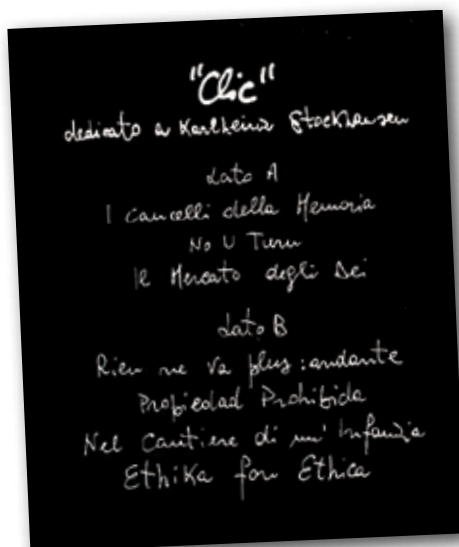 "Clic"
dedicato a Karlheinz Stockhausen
Lato A
I Cancelli della Memoria
No U Turn
Il Mercato degli Dei
Lato B
Rien ne va plus: andante
Propiedad Prohibida
Nel Cantiere di un' Infanzia
Ethika fon Ethica